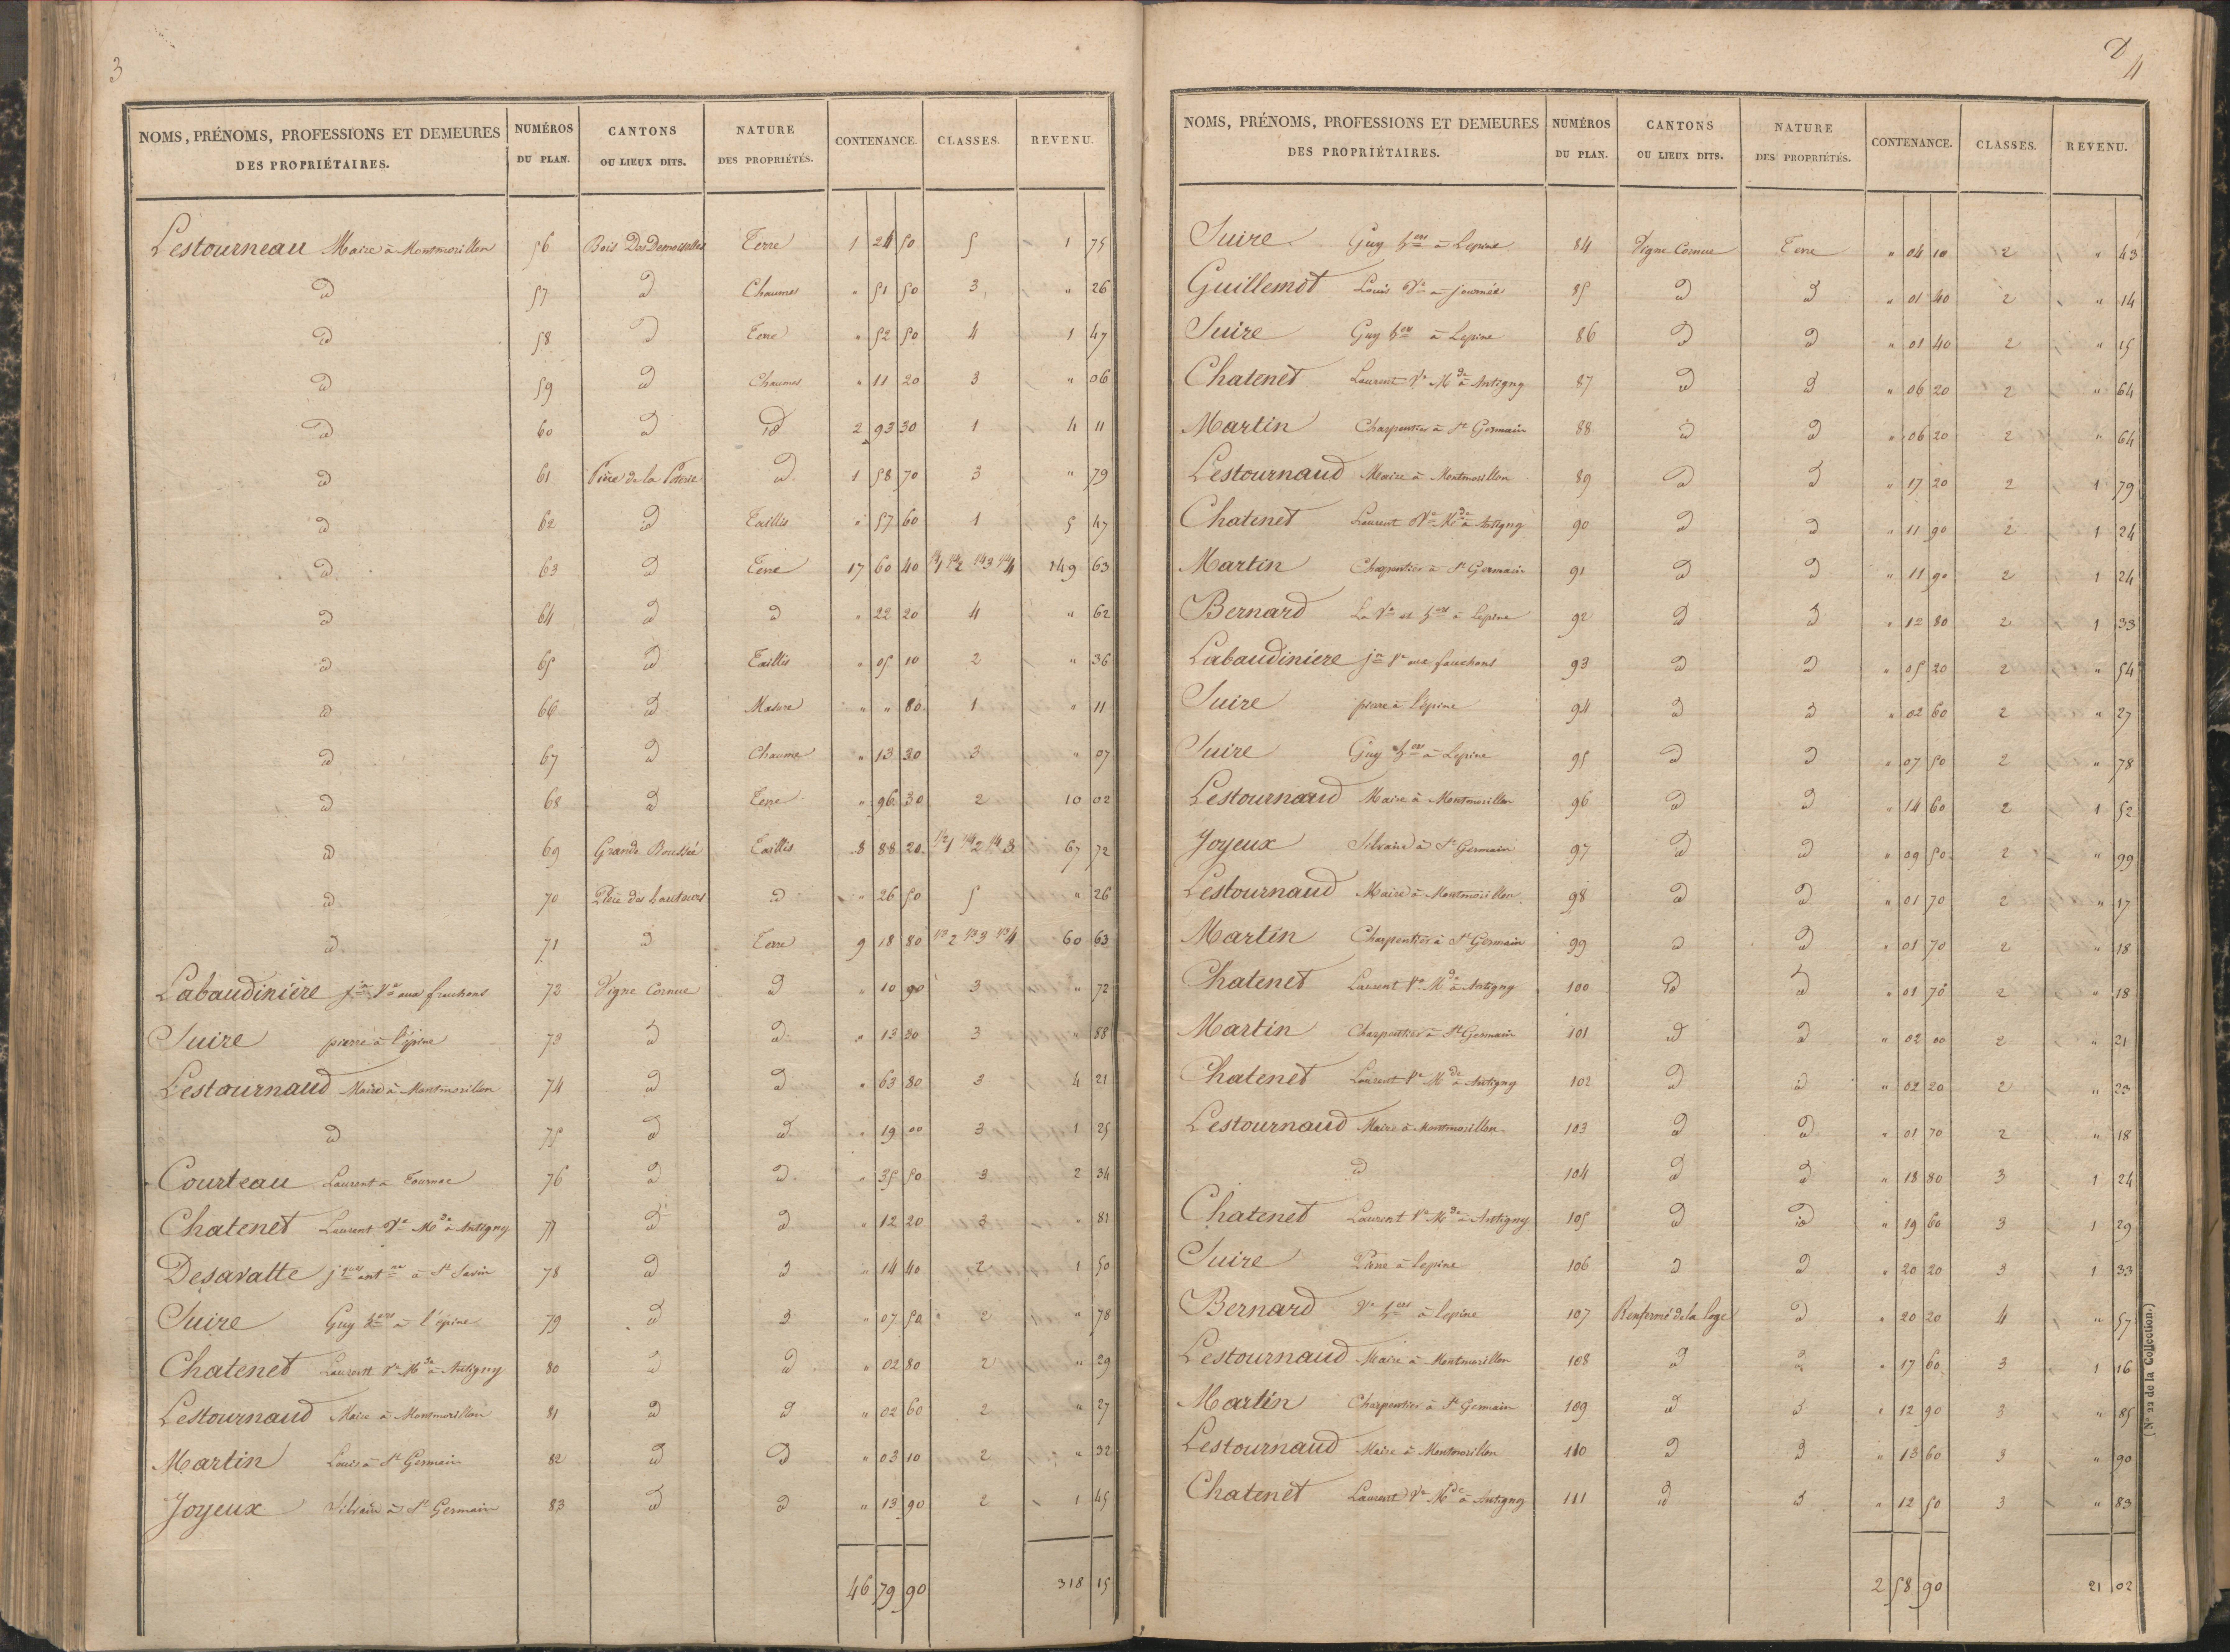 3
NOMS, PRÉNOMS, PROFESSIONS ET DEMEURES DES PROPRIÉTAIRES. NUMÉROS DU PLAN. CANTONS OU LIEUX DITS. NATURE DES PROPRIÉTÉS. CONTENANCE. CLASSES. REVENU.
Lestourneau Maire à Montmorillon 56 Bois Des Demoiselles Terre 1 24 50 5 1 75
d 57 d Chaumes " 51 50 3 " 26
d 58 d Terre " 52 50 4 1 47
d 59 d Chaumes " 11 20 3 " 06
d 60 d id 2 93 30 1 4 11
d 61 Pièce de la d 1 58 70 3 " 79
d 62 d Taillis " 57 60 1 5 47
d 63 d Terre 17 60 40 1/4 1 1/4 2 1/4 3 1/4 4 149 63
d 64 d d " 22 20 4 " 62
d 65 d Taillis " 05 10 2 " 36
d 66 d Masure " " 80 1 " 11
d 67 d Chaume " 13 30 3 " 07
d 68 d Terre " 96 30 2 10 02
d 69 Grande Taillis 8 88 20 1/2 1 1/4 2 1/4 3 67 72
d 70 Pièce des hauteurs d " 26 50 5 " 26
d 71 d Terre 9 18 80 1/3 2 1/3 3 1/3 4 60 63
Labaudiniere Jn Ve aux frauchons 72 Vigne Cornue d " 10 90 3 " 72
Suire pierre à l'épine 73 d d " 13 30 3 " 88
Lestournaud Maire à Montmorillon 74 d d " 63 80 3 4 21
d 75 d d " 19 00 3 1 25
Courteau Laurent à Tournac 76 d d " 35 50 3 2 34
Chatenet Laurent Ve Mde à Antigny 77 d d " 12 20 3 " 81
Desavatte à St Savin 78 d d " 14 40 2 1 50
Suire Guy hers à l'épine 79 d d " 07 50 2 " 78
Chatenet Laurent Ve Mde à Antigny 80 d d " 02 80 2 " 29
Lestournaud Maire à Montmorillon 81 d d " 02 60 2 " 27
Martin Louis à St Germain 82 d d " 03 10 2 " 32
Joyeux Silvain à St Germain 83 d d " 13 90 2 1 45
46 79 90 318 15
4
NOMS, PRÉNOMS, PROFESSIONS ET DEMEURES DES PROPRIÉTAIRES. NUMÉROS DU PLAN. CANTONS OU LIEUX DITS. NATURE DES PROPRIÉTÉS. CONTENANCE. CLASSES. REVENU.
Suire Guy hers à Lepine 84 Vigne Cornue Terre " 04 10 2 " 43
Guillemot Louis Ve à journée 85 d d " 01 40 2 " 14
Suire Guy hers à Lepine 86 d d " 01 40 2 " 15
Chatenet Laurent Ve Mde à Antigny 87 d d " 06 20 2 " 64
Martin Charpentier à St Germain 88 d d " 06 20 2 " 64
Lestournaud Maire à Montmorillon 89 d d " 17 20 2 1 79
Chatenet Laurent Ve Mde à Antigny 90 d d " 11 90 2 1 24
Martin Charpentier à St Germain 91 d d " 11 90 2 1 24
Bernard La Ve et hers à Lepine 92 d d " 12 80 2 1 33
Labaudiniere Jn Ve aux fauchons 93 d d " 05 20 2 " 54
Suire pierre à l'épine 94 d d " 02 60 2 " 27
Suire Guy hers à Lepine 95 d d " 07 50 2 " 78
Lestournaud Maire à Montmorillon 96 d d " 14 60 2 1 52
Joyeux Silvain à St Germain 97 d d " 09 50 2 " 99
Lestournaud Maire à Montmorillon 98 d d " 01 70 2 " 17
Martin Charpentier à St Germain 99 d d " 01 70 2 " 18
Chatenet Laurent Ve Mde à Antigny 100 id d " 01 70 2 " 18
Martin Charpentier à St Germain 101 d d " 02 00 2 " 21
Chatenet Laurent Ve Mde à Antigny 102 d d " 02 20 2 " 23
Lestournaud Maire à Montmorillon 103 d d " 01 70 2 " 18
d 104 d d " 18 80 3 1 24
Chatenet Laurent Ve Mde à Antigny 105 d id " 19 60 3 1 29
Suire Pierre à Lepine 106 d d " 20 20 3 1 33
Bernard Ve hers à lepine 107 Renfermé de la loge d " 20 20 4 " 57
Lestournaud Maire à Montmorillon 108 d d " 17 60 3 1 16
Martin Charpentier à St Germain 109 d d " 12 90 3 " 85
Lestournaud Maire à Montmorillon 110 d d " 13 60 3 " 90
Chatenet Laurent Ve Mde à Antigny 111 d d " 12 50 3 " 83
2 58 90 21 02
(N° 22 de la Collection.)